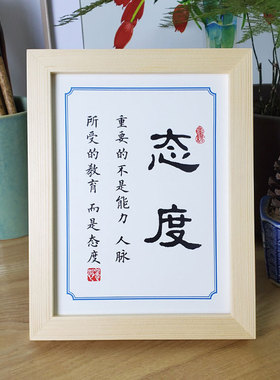 态度
重要的不是能力 人脉
所受的教育 而是态度